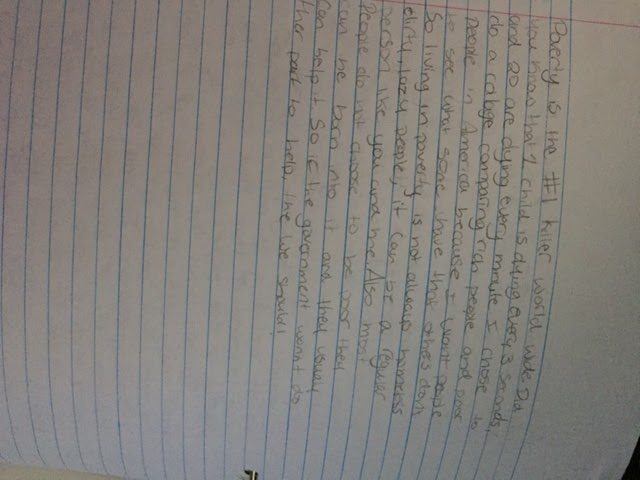 Poverty is the #1 killer world wide. Did
you know that 1 child is dying every 3 seconds,
and 20 are dying every minute I chose to
do a collage comparing rich people and poor
people in America because I want people
to see what some have that others don't
So living in poverty is not always homeless
dirty, lazy people, it can be a regular
person like you and me. Also most
people do not choose to be poor they
can be born into it and they usually
can help it. So if the government wonnt do
ther part to help, the we should!